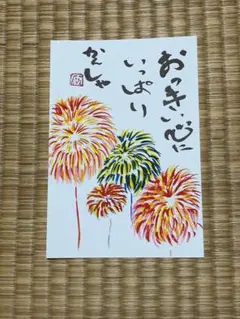 おっきい心に
いっぱい
かんしゃ